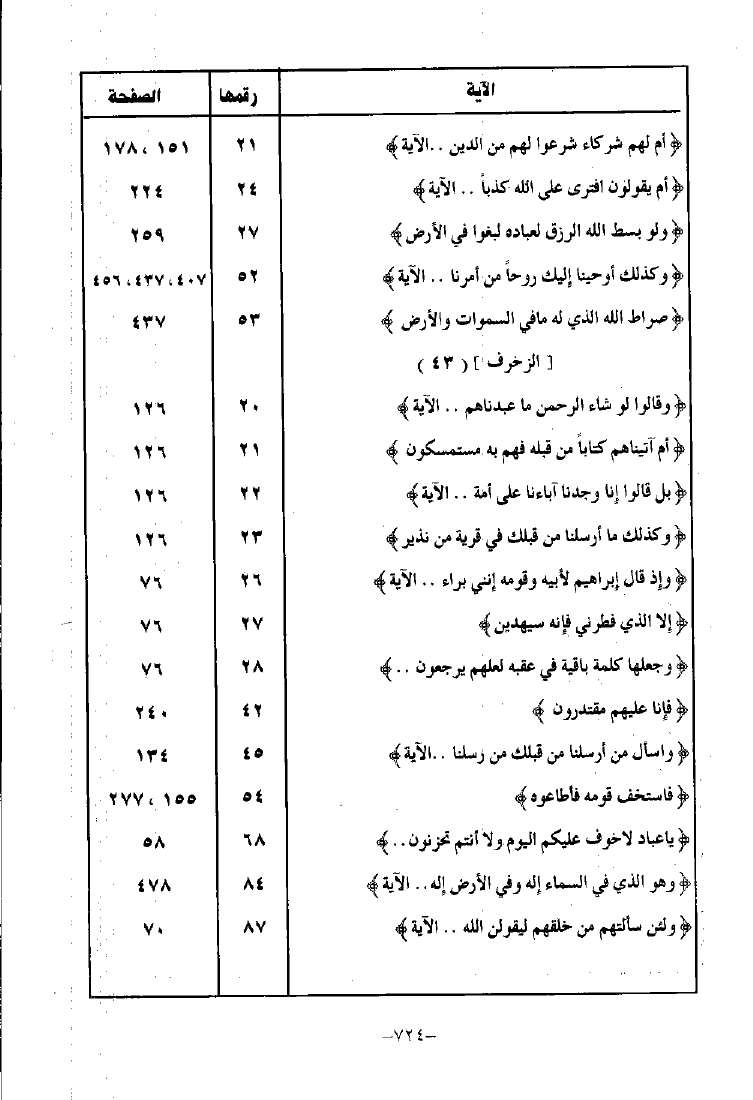 الآية رقمها الصفحة
﴿ أم لهم شركاء شرعوا لهم من الدين ..الآية ﴾ ٢١ ١٥١ ، ١٧٨
﴿ أم يقولون افترى على الله كذباً .. الآية ﴾ ٢٤ ٢٢٤
﴿ ولو بسط الله الرزق لعباده لبغوا في الأرض ﴾ ٢٧ ٢٥٩
﴿ وكذلك أوحينا إليك روحاً من أمرنا .. الآية ﴾ ٥٢ ٤٠٧ ، ٤٣٧ ، ٤٥٦
﴿ صراط الله الذي له مافي السموات والأرض ﴾ ٥٣ ٤٣٧
[ الزخرف ] ( ٤٣ )
﴿ وقالوا لو شاء الرحمن ما عبدناهم .. الآية ﴾ ٢٠ ١٢٦
﴿ أم آتيناهم كتاباً من قبله فهم به مستمسكون ﴾ ٢١ ١٢٦
﴿ بل قالوا إنا وجدنا آباءنا على أمة .. الآية ﴾ ٢٢ ١٢٦
﴿ وكذلك ما أرسلنا من قبلك في قرية من نذير ﴾ ٢٣ ١٢٦
﴿ وإذ قال إبراهيم لأبيه وقومه إنني براء .. الآية ﴾ ٢٦ ٧٦
﴿ إلا الذي فطرني فإنه سيهدين ﴾ ٢٧ ٧٦
﴿ وجعلها كلمة باقية في عقبه لعلهم يرجعون .. ﴾ ٢٨ ٧٦
﴿ فإنا عليهم مقتدرون ﴾ ٤٢ ٢٤٠
﴿ واسأل من أرسلنا من قبلك من رسلنا ..الآية ﴾ ٤٥ ١٣٤
﴿ فاستخف قومه فأطاعوه ﴾ ٥٤ ١٥٥ ، ٢٧٧
﴿ ياعباد لاخوف عليكم اليوم ولا أنتم تحزنون.. ﴾ ٦٨ ٥٨
﴿ وهو الذي في السماء إله وفي الأرض إله.. الآية ﴾ ٨٤ ٤٧٨
﴿ ولئن سألتهم من خلقهم ليقولن الله .. الآية ﴾ ٨٧ ٧٠
–٧٢٤–